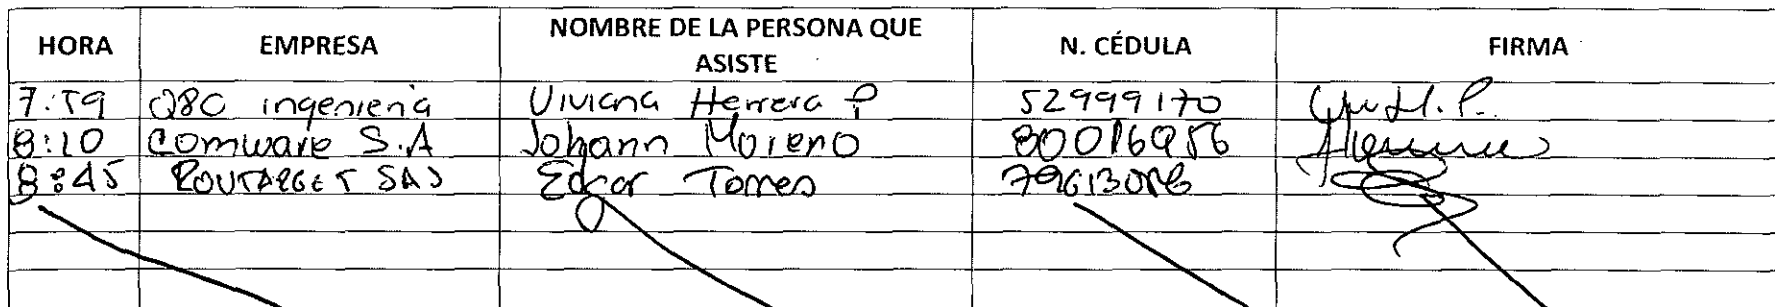 HORA EMPRESA NOMBRE DE LA PERSONA QUE ASISTE N. CÉDULA FIRMA
7:59 Q80 ingenieria Viviana Herrera P. 52999170 H.P.
8:10 Comware S.A Johann Moreno 80016956
8:45 ROUTARGET SAS Edgar Torres